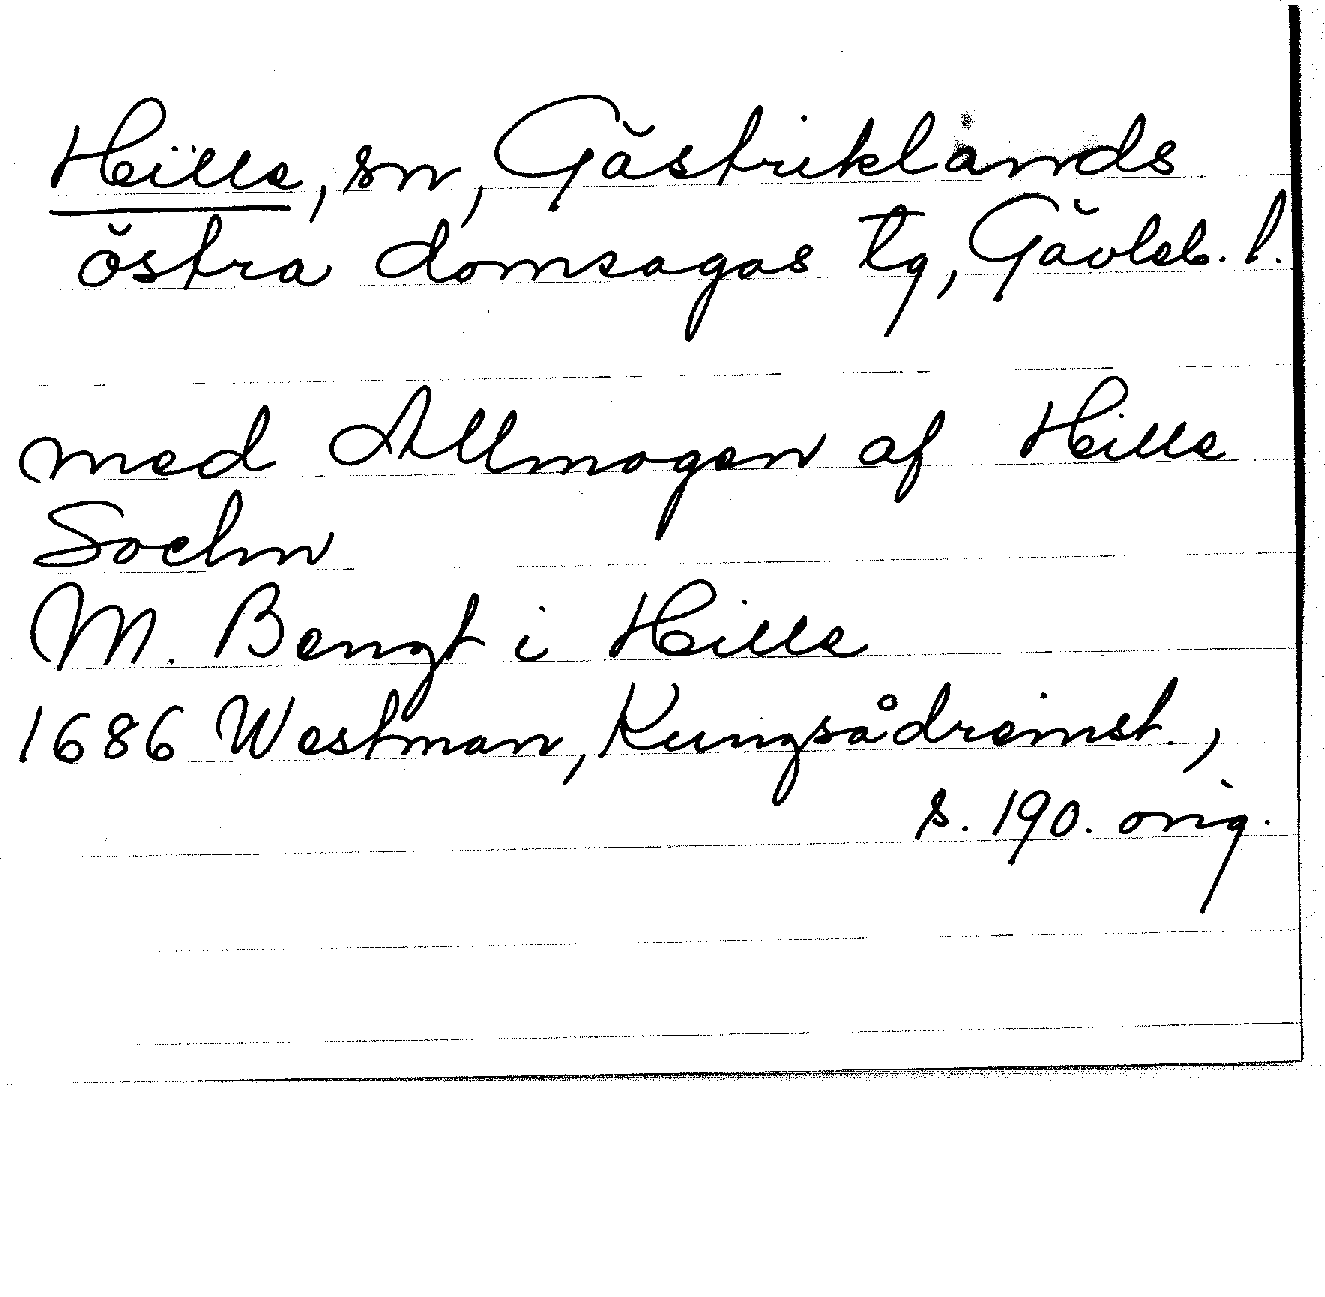 Hille, sn, Gästriklands
östra domsagas tg, Gävleb. l.
med Allmogen af Hille
Sochn
M. Bengt i Hille
1686 Westman, Kungsådreinst.,
s. 190. orig.